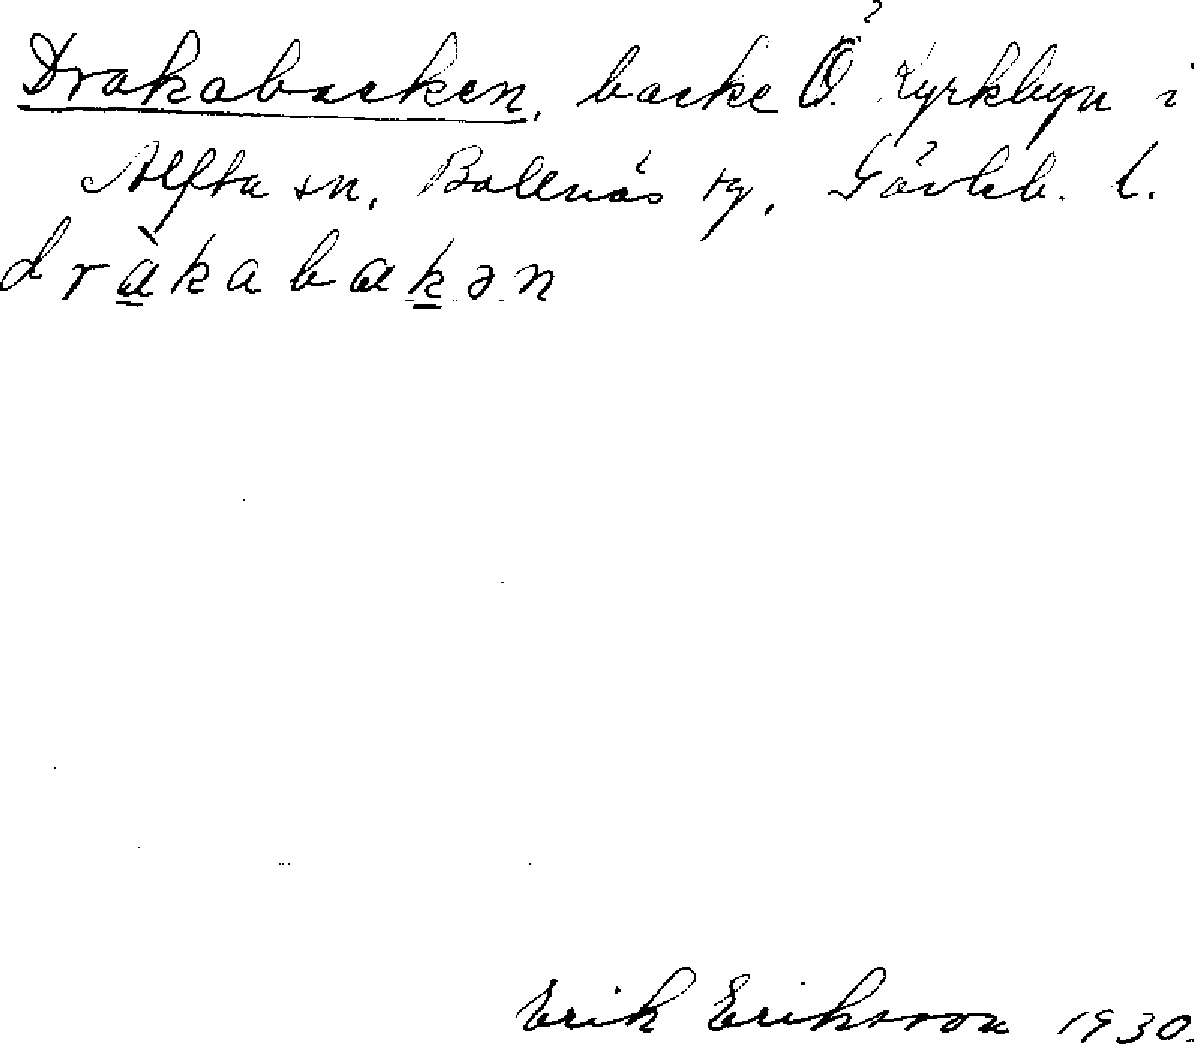 Drakabacken, backe Ö. Kyrkbyn i
Alfta sn, Bollnäs tg, Gävleb. l.
dràkabakən
Erik Eriksson 1930.